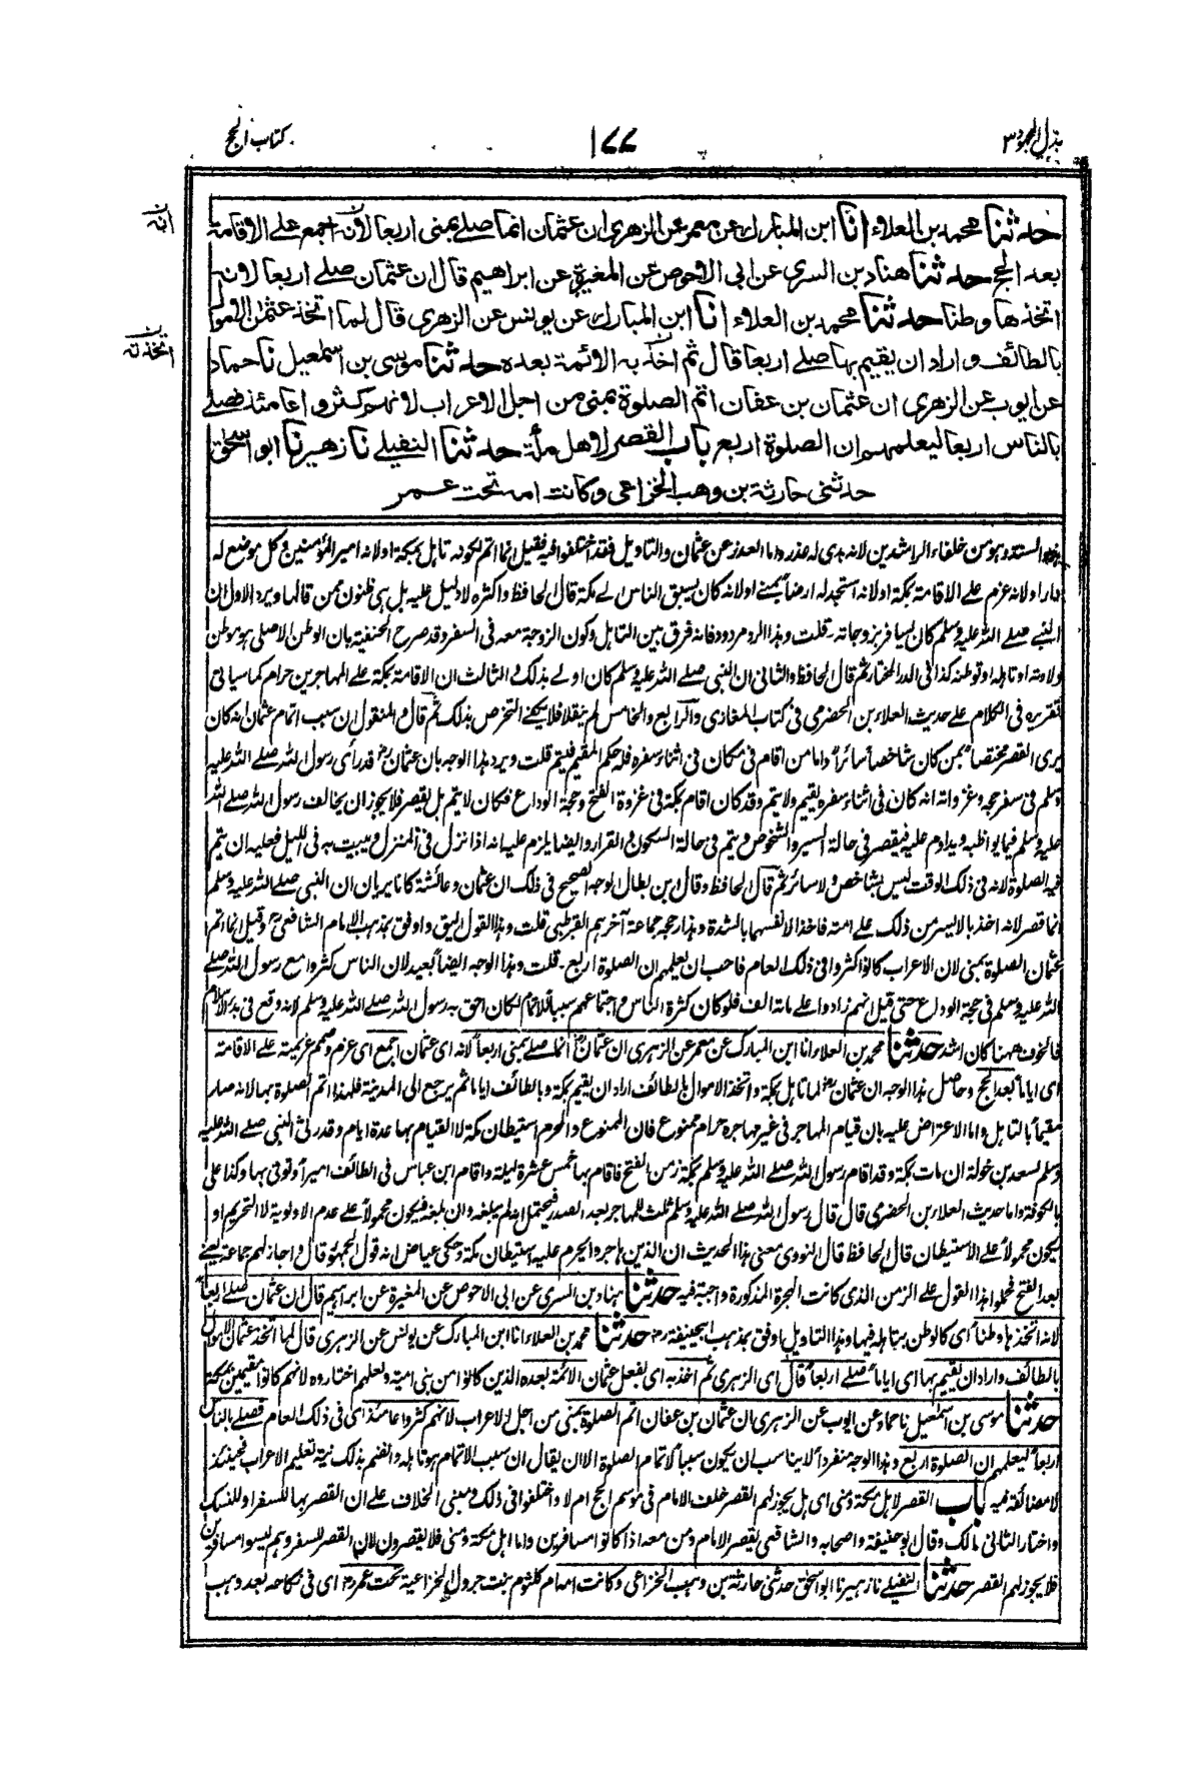 بذل المجهود ٣
١٧٧
كتاب الحج
حدثنا محمد بن العلاء انا ابن المبارك عن معمر عن الزهرى ان عثمان انما صلے بمنى اربعا لانه اجمع على الاقامة
انه
بعد الحج حدثنا هناد بن السرى عن ابى الاحوص عن المغيرة عن ابراهيم قال ان عثمان صلے اربعا لانه
اتخذها وطنا حدثنا محمد بن العلاء انا ابن المبارك عن يونس عن الزهرى قال لما اتخذ عثمان الاموال
بالطائف واراد ان يقيم بها صلے اربعا قال ثم اخذ به الائمة بعده حدثنا موسى بن اسمعيل نا حماد
عن ايوب عن الزهرى ان عثمان بن عفان اتم الصلوة بمنى من اجل الاعراب لانهم كثروا عامئذ فصلے
بالناس اربعا ليعلمهم ان الصلوة اربع باب القصر لاهل مكة حدثنا النفيلے نا زهير نا ابو اسحق
حدثنى حارثة بن وهب الخزاعى وكانت امه تحت عمر
السنة وهو من خلفاء الراشدين لانه بدى له عذر واما العذر عن عثمان والتاويل فقد اختلفوا فيه فقيل انما اتم لكونه تاهل بمكة او لانه امير المؤمنين وكل موضع له
دار او لانه عزم علے الاقامة بمكة او لانه استجد له ارضا بمنے او لانه كان يسبق الناس لے مكة قال الحافظ واكثره لا دليل عليه بل هى ظنون ممن قالها ويرد الاول ان
النبے صلے الله عليه وسلم كان يسافر بزوجاته قلت وهذا الرد مردود فانه فرق بين التاهل وكون الزوجة معه فى السفر وقد صرح الحنفية بان الوطن الاصلى هو موطن
ولادته او تاهله او توطنه كذا فى الدر المختار ثم قال الحافظ والثانى ان النبى صلے الله عليه وسلم كان اولے بذلك والثالث ان الاقامة بمكة علے المهاجرين حرام كما سياتى
تقريره فى الكلام علے حديث العلاء بن الحضرمى فى كتاب المغازى والرابع والخامس لم ينقلا فلا يكفى التخرص بذلك ثم قال والمنقول ان سبب اتمام عثمان انه كان
يرى القصر مختصا بمن كان شاخصا سائرا واما من اقام فى مكان فى اثناء سفره فله حكم المقيم فيتم قلت ويرد هذا الوجه بان عثمان قد رأى رسول الله صلے الله عليه
وسلم فى سفر حجه وغزواته انه كان فى اثناء سفره يقيم ولا يتم وقد كان اقام بمكة فى غزوة الفتح وحجة الوداع فكان لا يتم بل يقصر فلا يجوز ان يخالف رسول الله صلے الله
عليه وسلم فيما يواظبه ويداوم عليه فيقصر فى حالة السير والشخوص ويتم فى حالة السكون والقرار وايضا يلزم عليه انه اذا نزل فى المنزل ويبيت به فى الليل فعليه ان يتم
فيه الصلوة لانه فى ذلك الوقت ليس بشاخص ولا سائر ثم قال الحافظ وقال ابن بطال الوجه الصحيح فى ذلك ان عثمان وعائشة كانا يريان ان النبى صلے الله عليه وسلم
انما قصر لانه اخذ بالايسر من ذلك علے امته فاخذا لانفسهما بالشدة وهذا رجحه جماعة آخرهم القرطبى قلت وهذا القول اليق واوفق بمذهب الامام الشافعى وقيل انما اتم
عثمان الصلوة بمنى لان الاعراب كانوا كثروا فى ذلك العام فاحب ان يعلمهم ان الصلوة اربع قلت وهذا الوجه ايضا بعيد لان الناس كثروا مع رسول الله صلے
الله عليه وسلم فى حجة الوداع حتى قيل انهم زادوا علے مائة الف فلو كان كثرة الناس واجتماعهم سببا للاتمام لكان احق به رسول الله صلے الله عليه وسلم لانه وقع فى بدء الاسلام
فالخوف ههنا كان اشد حدثنا محمد بن العلاء انا ابن المبارك عن معمر عن الزهرى ان عثمان انما صلے بمنى اربعا لانه اى عثمان اجمع اى عزم وصمم عزيمته علے الاقامة
اى اياما بعد الحج وحاصل هذا الوجه ان عثمان لما تاهل بمكة واتخذ الاموال بالطائف اراد ان يقيم بمكة وبالطائف اياما ثم يرجع الى المدينة فلهذا اتم الصلوة بها لانه صار
مقيما بالتاهل واما الاعتراض عليه بان قيام المهاجر فى غير مهاجره حرام ممنوع فان الممنوع والمحرم استيطان مكة لا القيام بها عدة ايام وقد رثى النبى صلے الله عليه
وسلم لسعد بن خولة ان مات بمكة وقد اقام رسول الله صلے الله عليه وسلم بمكة زمن الفتح فاقام بها خمس عشرة ليلة واقام ابن عباس فى الطائف اميرا وتوفى بها وكذا على
بالكوفة واما حديث العلاء بن الحضرمى قال قال رسول الله صلے الله عليه وسلم ثلث للمهاجر بعد الصدر فيحتمل انه لم يبلغه وان بلغه فيكون محمولا علے عدم الاولوية لا التحريم او
يكون محمولا علے الاستيطان قال الحافظ قال النووى معنى هذا الحديث ان الذين هاجروا يحرم عليهم استيطان مكة وحكى عياض انه قول الجمهور قال واجاز لهم جماعة يعنے
بعد الفتح فحملوا هذا القول علے الزمن الذى كانت الهجرة المذكورة واجبة فيه حدثنا هناد بن السرى عن ابى الاحوص عن المغيرة عن ابراهيم قال ان عثمان صلے اربعا
لانه اتخذها وطنا اى كالوطن بتاهله فيها وهذا التاويل اوفق بمذهب ابى حنيفة حدثنا محمد بن العلاء انا ابن المبارك عن يونس عن الزهرى قال لما اتخذ عثمان الاموال
بالطائف واراد ان يقيم بها اى اياما صلے اربعا قال اى الزهرى ثم اخذ به اى بفعل عثمان الائمة بعده الذين كانوا من بنى امية ولعلهم اختاروه لانهم كانوا مقيمين بمكة
حدثنا موسى بن اسمعيل نا حماد عن ايوب عن الزهرى ان عثمان بن عفان اتم الصلوة بمنى من اجل الاعراب لانهم كثروا عامئذ اى فى ذلك العام فصلے بالناس
اربعا ليعلمهم ان الصلوة اربع وهذا الوجه منفردا لا يناسب ان يكون سببا لاتمام الصلوة الا ان يقال ان سبب الاتمام هو تاهله وانضم بذلك نية تعليم الاعراب فحينئذ
لا مضائقة فيه باب القصر لاهل مكة ومنى اى هل يجوز لهم القصر خلف الامام فى موسم الحج ام لا واختلفوا فى ذلك ومبنى الخلاف علے ان القصر بها للسفر او للنسك
واختار الثانى مالك وقال ابو حنيفة واصحابه والشافعى يقصر الامام ومن معه اذا كانوا مسافرين واما اهل مكة ومنى فلا يقصرون لان القصر للسفر وهم ليسوا مسافرين
فلا يجوز لهم القصر حدثنا النفيلے نا زهير نا ابو اسحق حدثنى حارثة بن وهب الخزاعى وكانت امه ام كلثوم بنت جرول الخزاعية تحت عمر اى فى نكاحه بعد وهب